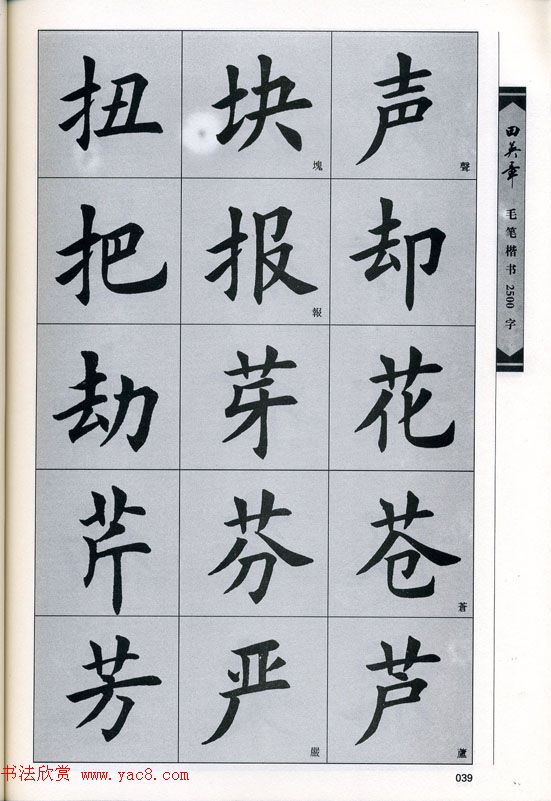 扭 块 塊 声 聲
把 报 報 却
劫 芽 花
芹 芬 苍 蒼
芳 严 嚴 芦 蘆
田英章
毛笔楷书2500字
039
书法欣赏 www.yac8.com